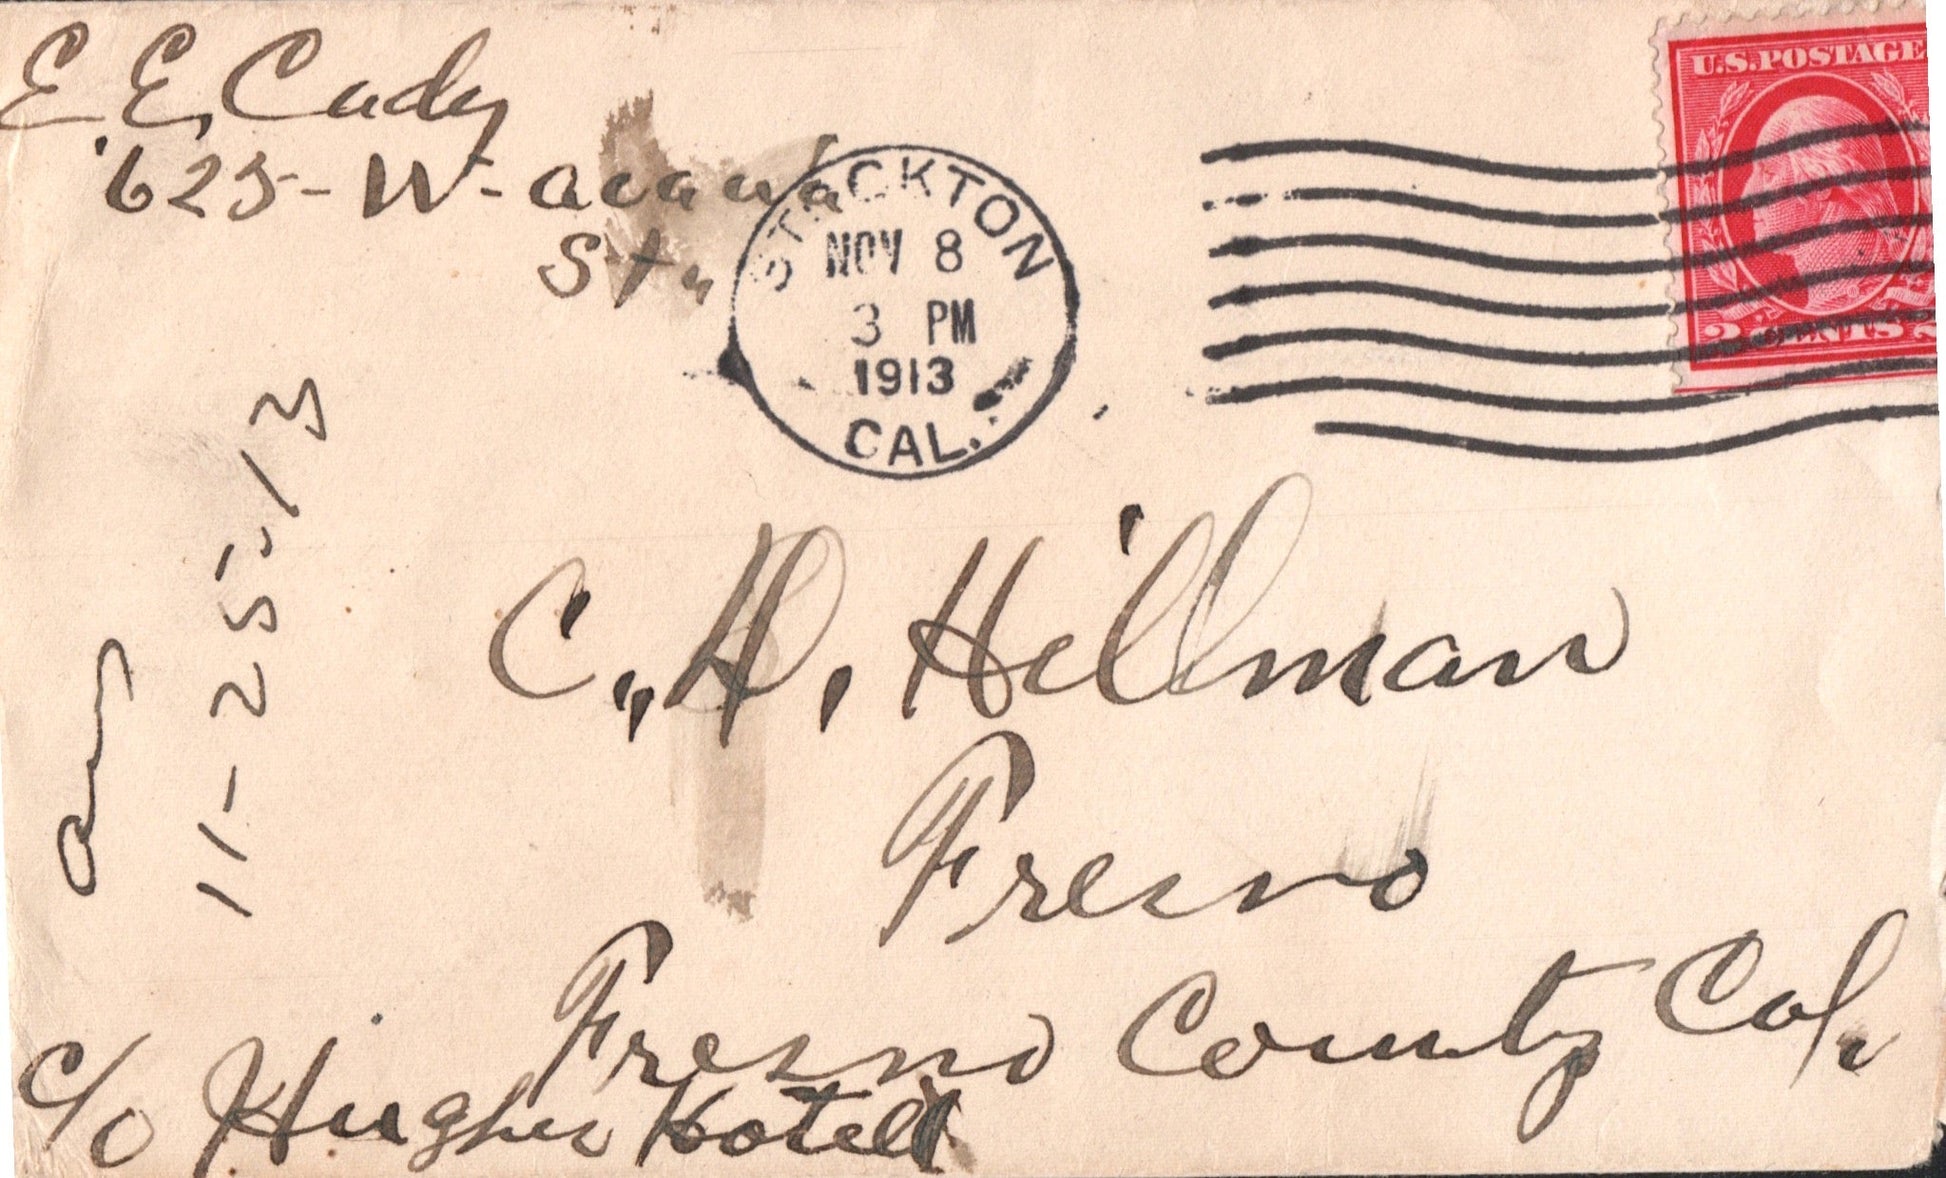 E. E. Cady
625 - W - acacia
St.
STOCKTON
NOV 8
3 PM
1913
CAL.
U.S. POSTAGE
2 CENTS 2
C. H. Hillman
Fresno
Fresno County Cal.
c/o Hughes Hotell
11-25-13